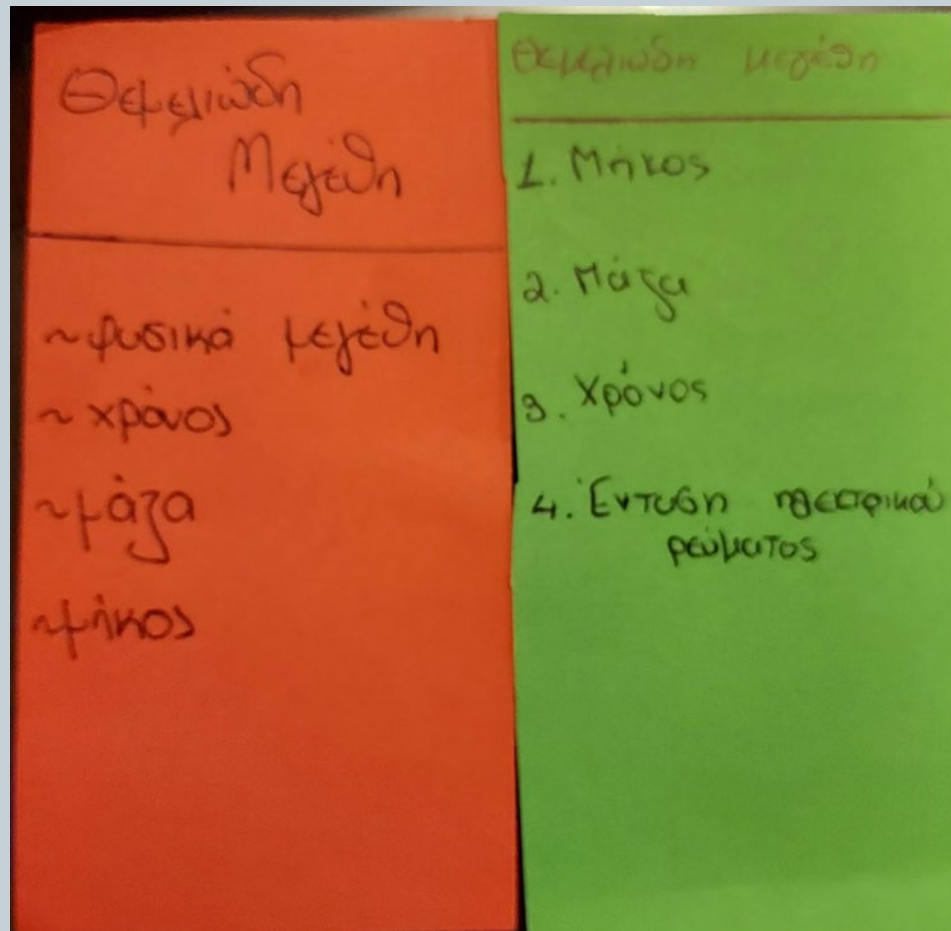 Θεμελιώδη
Μεγέθη
~φυσικά μεγέθη
~χρόνος
~μάζα
~μήκος
Θεμελιώδη μεγέθη
1. Μήκος
2. Μάζα
3. Χρόνος
4. Ένταση ηλεκτρικού
ρεύματος